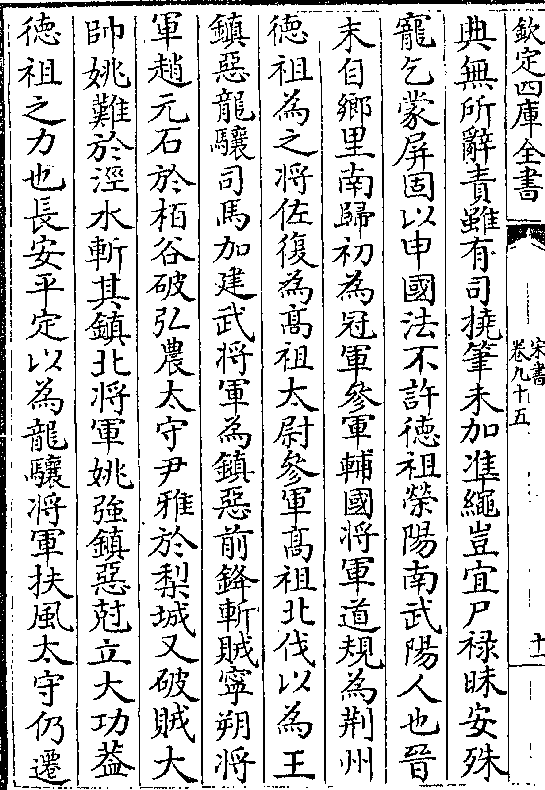 欽定四庫全書
宋書
卷九十五
十一
典無所辭責雖有司撓筆未加準繩豈宜尸禄昧安殊
寵乞蒙屏固以申國法不許徳祖榮陽南武陽人也晉
末自鄉里南歸初為冠軍參軍輔國将軍道規為荆州
徳祖為之将佐復為髙祖太尉參軍髙祖北伐以為王
鎮惡龍驤司馬加建武将軍為鎮惡前鋒斬賊寧朔将
軍趙元石於栢谷破弘農太守尹雅於梨城又破賊大
帥姚難於涇水斬其鎮北将軍姚強鎮惡尅立大功葢
徳祖之力也長安平定以為龍驤将軍扶風太守仍遷